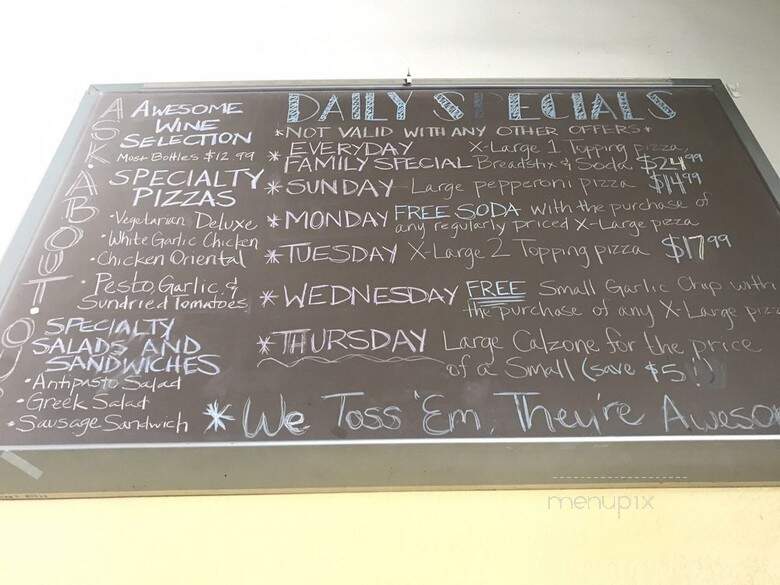 ASK ABOUT! OU
AWESOME
WINE
SELECTION
Most Bottles $12.99
SPECIALTY
PIZZAS
• Vegetarian Deluxe
• White Garlic Chicken
• Chicken Oriental
• Pesto, Garlic, &
Sundried Tomatoes
SPECIALTY
SALADS AND
SANDWICHES
• Antipasto Salad
• Greek Salad
• Sausage Sandwich
DAILY SPECIALS
*NOT VALID WITH ANY OTHER OFFERS*
* EVERYDAY X-Large 1 Topping pizza,
FAMILY SPECIAL Breadstix & Soda $24.99
* SUNDAY Large pepperoni pizza $14.99
* MONDAY FREE SODA with the purchase of
any regularly priced X-Large pizza
* TUESDAY X-Large 2 Topping pizza $17.99
* WEDNESDAY FREE Small Garlic Chzp with
the purchase of any X-Large pizz
* THURSDAY Large Calzone for the price
of a Small (save $5!)
* We Toss 'Em, They're Aweso
menupix